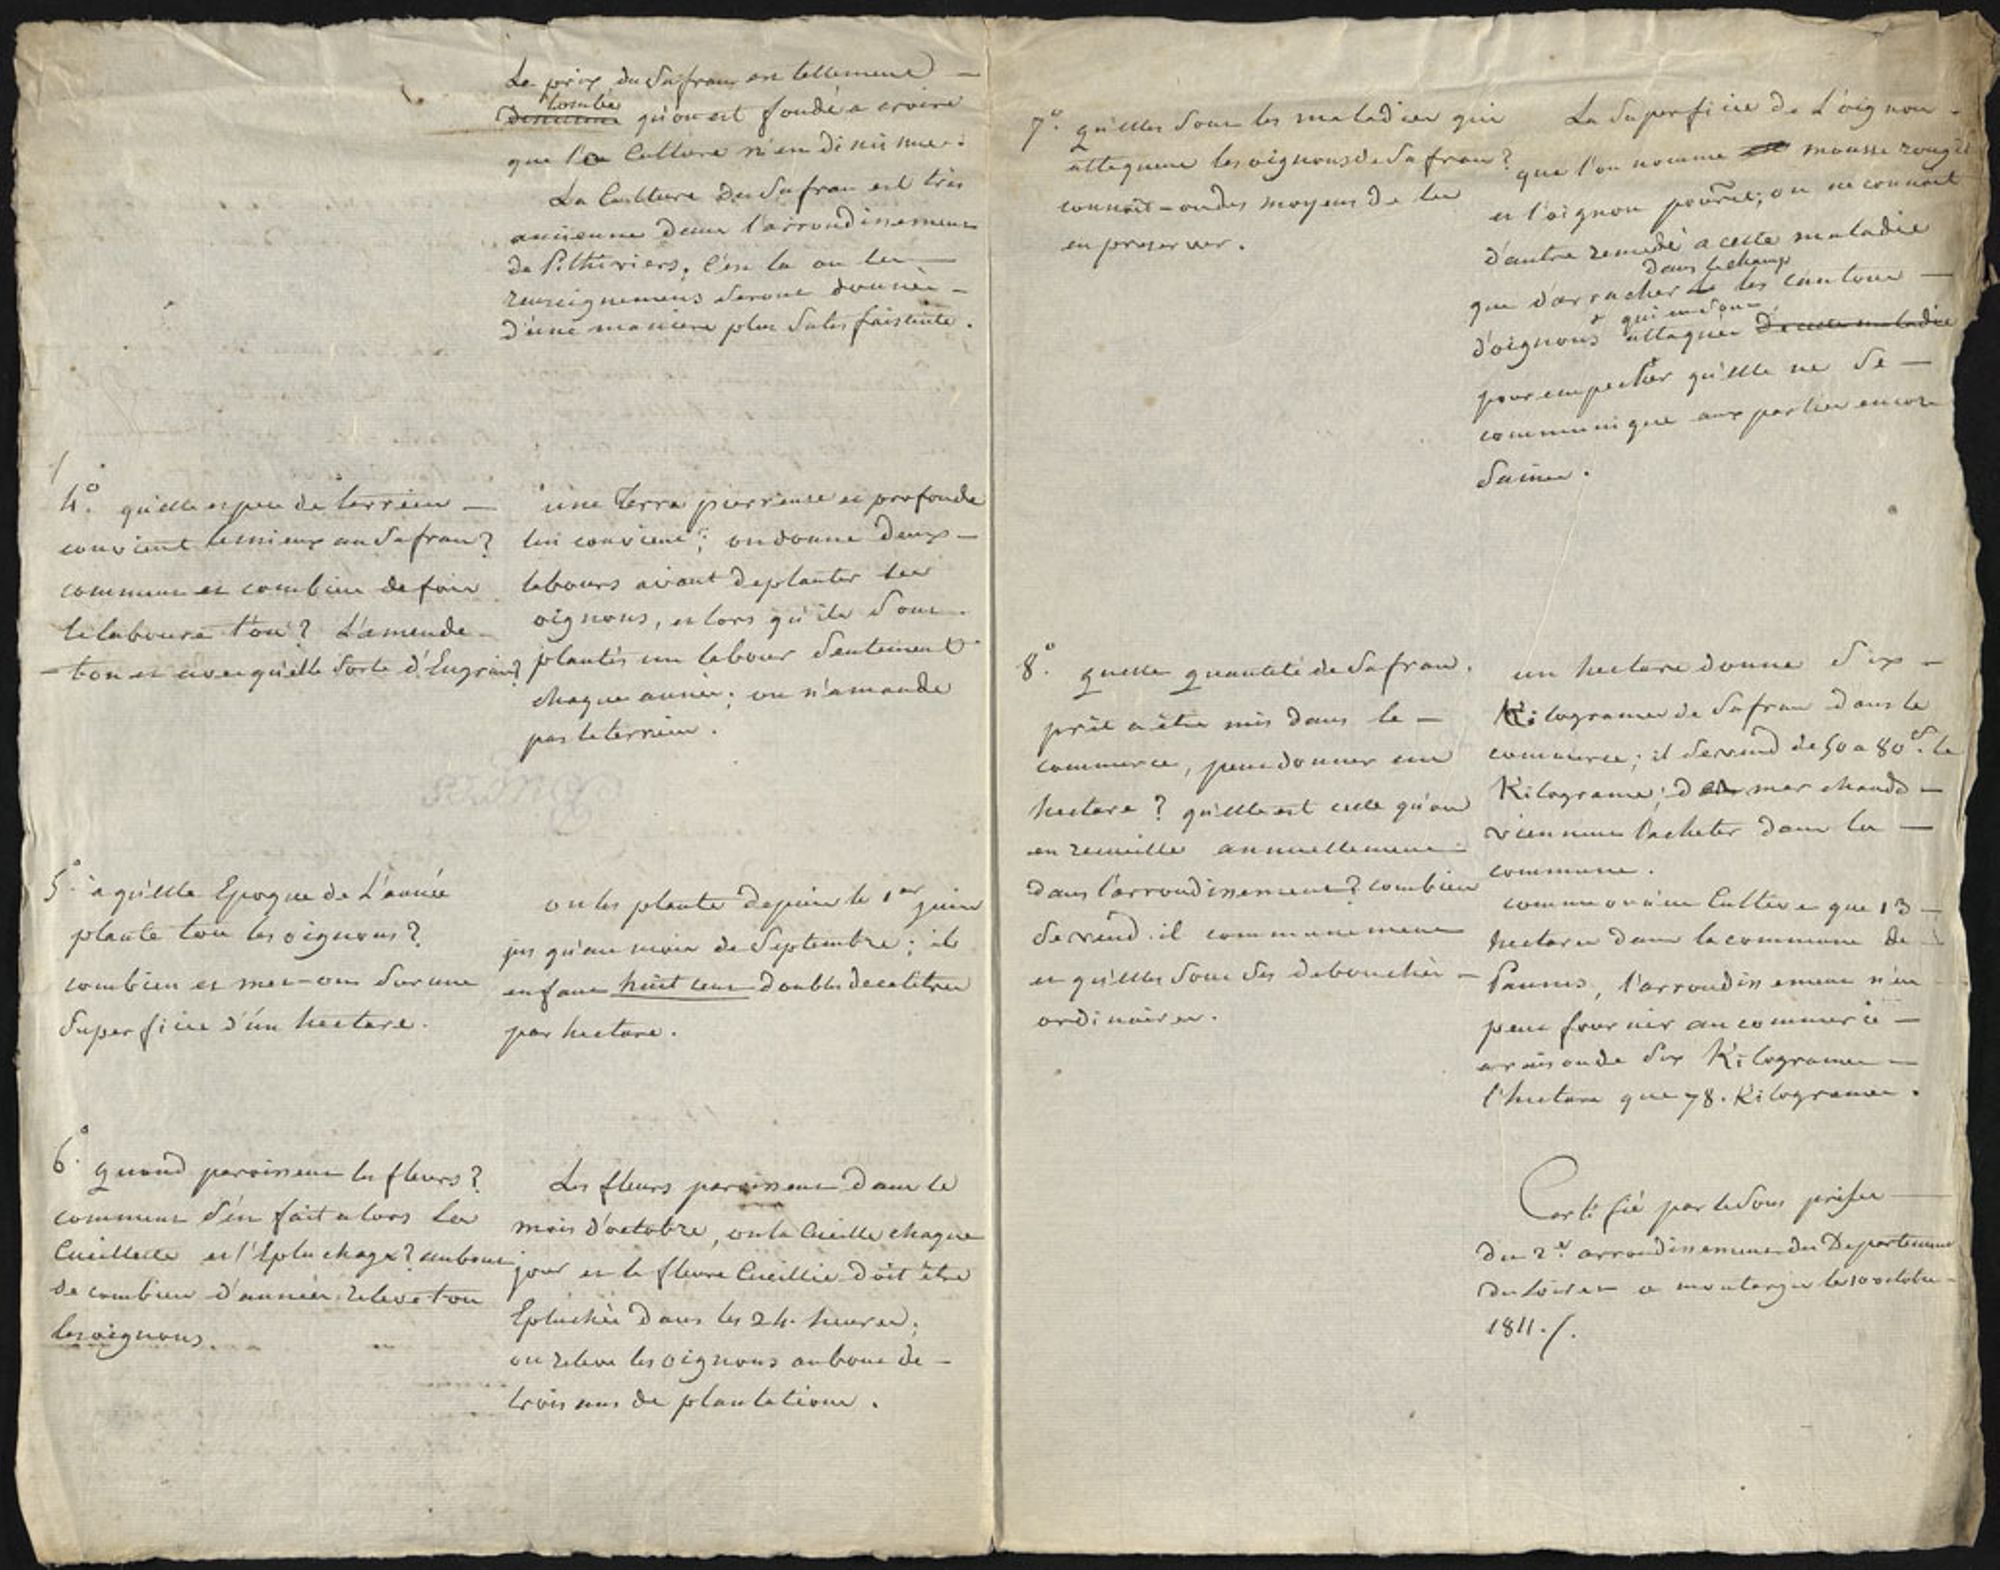 Le prix du Safran est tellement
tombé
diminué qu'on est fondé a croire
que la Culture n'en diminue.
La Culture du Safran est très
ancienne dans l'arrondissement
de Pithiviers, c'est la ou les
renseignemens seront donnés
d'une maniere plus satisfaisante.
4.° quelle espece de terrein
convient le mieux au Safran?
comment et combien de fois
le laboure t'on? L'amende
ton et avec quelle sorte d'Engrais?
une terre pierreuse et profonde
lui convient; on donne deux
labours avant de planter les
oignons, et lors qu'ils sont
plantés un labour seulement
chaque année; on n'amande
pas le terrein.
5.° a quelle Epoque de L'année
plante ton les oignons?
combien en met-on sur une
superficie d'un hectare.
on les plante depuis le 1er juin
jusqu'au mois de Septembre; il
en faut huit cent doubles decalitres
par hectare.
6.° quand paroissent les fleurs?
comment s'en fait alors la
Cueillette et l'Epluchage? au bout
de combien d'années releve ton
les oignons.
Les fleurs paroissent dans le
mois d'octobre, on la Cueille chaque
jour et la fleure Cueillie doit être
Epluchée dans les 24. heures;
on releve les oignons au bout de
trois ans de plantations.
7.° quelles sont les maladies qui
attaquent les oignons de Safran?
connoit-on des moyens de les
en preserver.
La Superficie de L'oignon
que l'on nomme mousse rougit
et l'oignon pourit; on ne connait
d'autre remede a cette maladie
dans le champ
que d'arracher les cantons
qui en sont
d'oignons attaqués de cette maladie
pour empecher qu'elle ne se
communique aux parties encore
saines.
8.° quelle quantité de Safran
prêt a être mis dans le
commerce, peut donner un
hectare? quelle est celle qu'on
en recueille annuellement
dans l'arrondissement? combien
se vend-il communement
et quelles sont ses debouchés
ordinaires.
un hectare donne six
Kilogrames de Safran dans le
commerce; il se vend de 50 a 80 f. le
Kilograme; des marchands
viennent l'acheter dans la
commune.
comme on n'en Cultive que 13
hectares dans la commune de
Pannes, l'arrondissement n'en
peut fournir au commerce
a raison de six Kilogrames
l'hectare que 78. Kilogrames.
Certifié par le Sous préfet
du 2e arrondissement du Departement
du Loiret a montargis le 10 octobre
1811./.